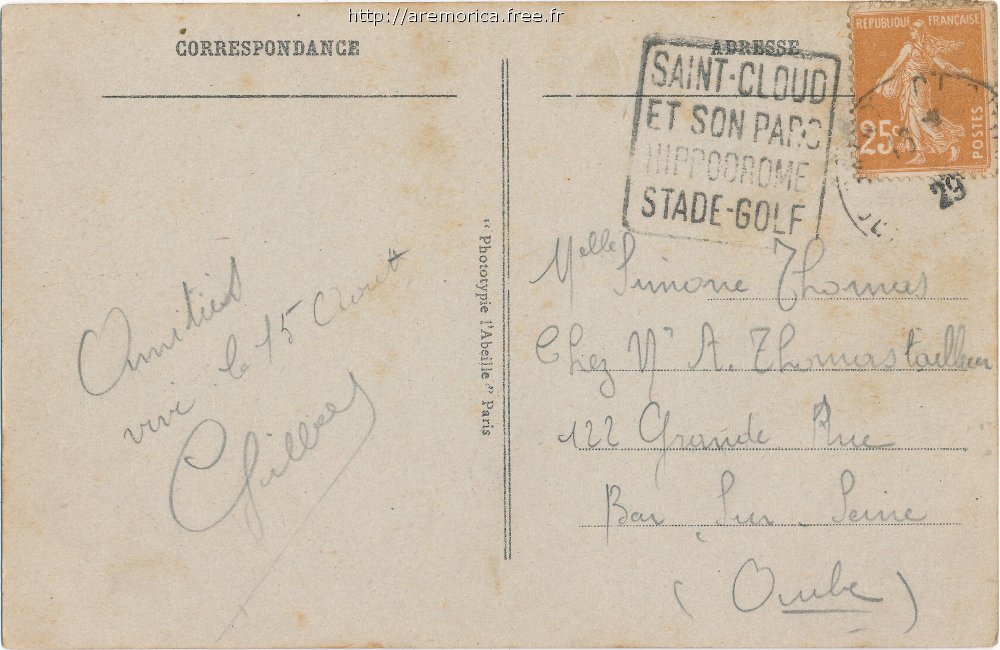 http://aremorica.free.fr
CORRESPONDANCE
Amitiés
vive le 15 Aout
Gilbert
"Phototypie l'Abeille" Paris
ADRESSE
SAINT-CLOUD
ET SON PARC
HIPPODROME
STADE-GOLF
REPUBLIQUE FRANÇAISE
25c
POSTES
29
Melle Simone Thomas
Chez Mr A. Thomas tailleur
122 Grande Rue
Bar Sur Seine
(Aube)